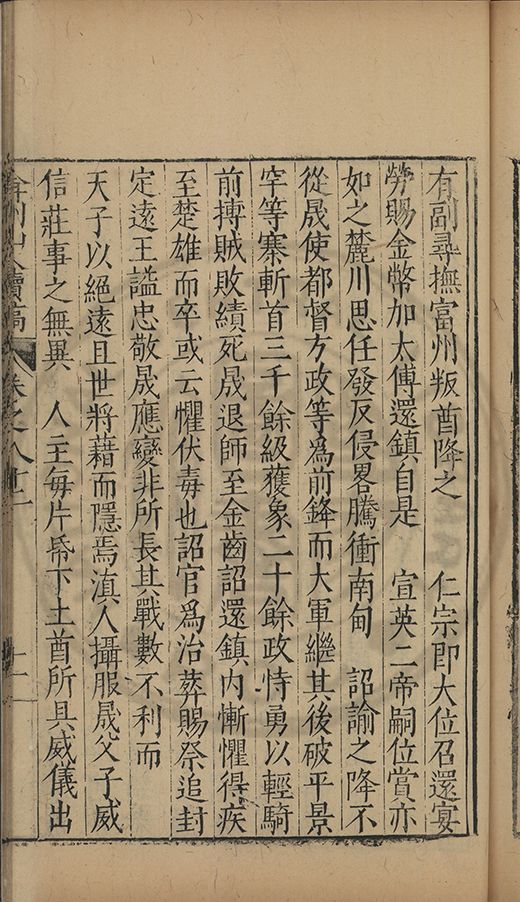 有副尋撫富州叛酋降之　仁宗即大位召還宴
勞賜金幣加太傅還鎮自是　宣英二帝嗣位賞亦
如之麓川思任發反侵畧騰衝南甸　詔諭之降不
從晟使都督方政等爲前鋒而大軍繼其後破平景
罕等寨斬首三千餘級獲象二十餘政恃勇以輕騎
前搏賊敗績死晟退師至金齒詔還鎮内慚懼得疾
至楚雄而卒或云懼伏毒也詔官爲治葬賜祭追封
定遠王謚忠敬晟應變非所長其戰數不利而
天子以絕遠且世將藉而隱焉滇人攝服晟父子威
信莊事之無異　人主每片帋下土酋所具威儀出
續稿　卷之八